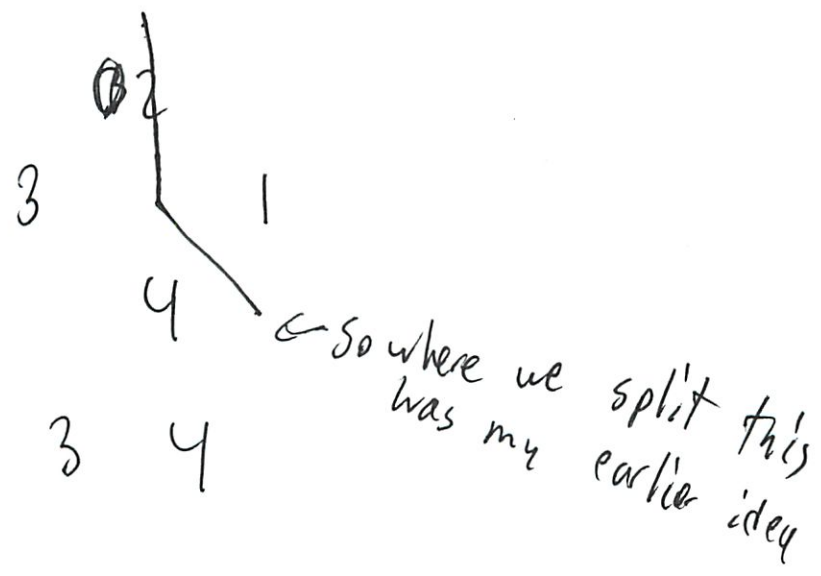 2
3 1
4
← So where we split this
was my earlier idea
3 4